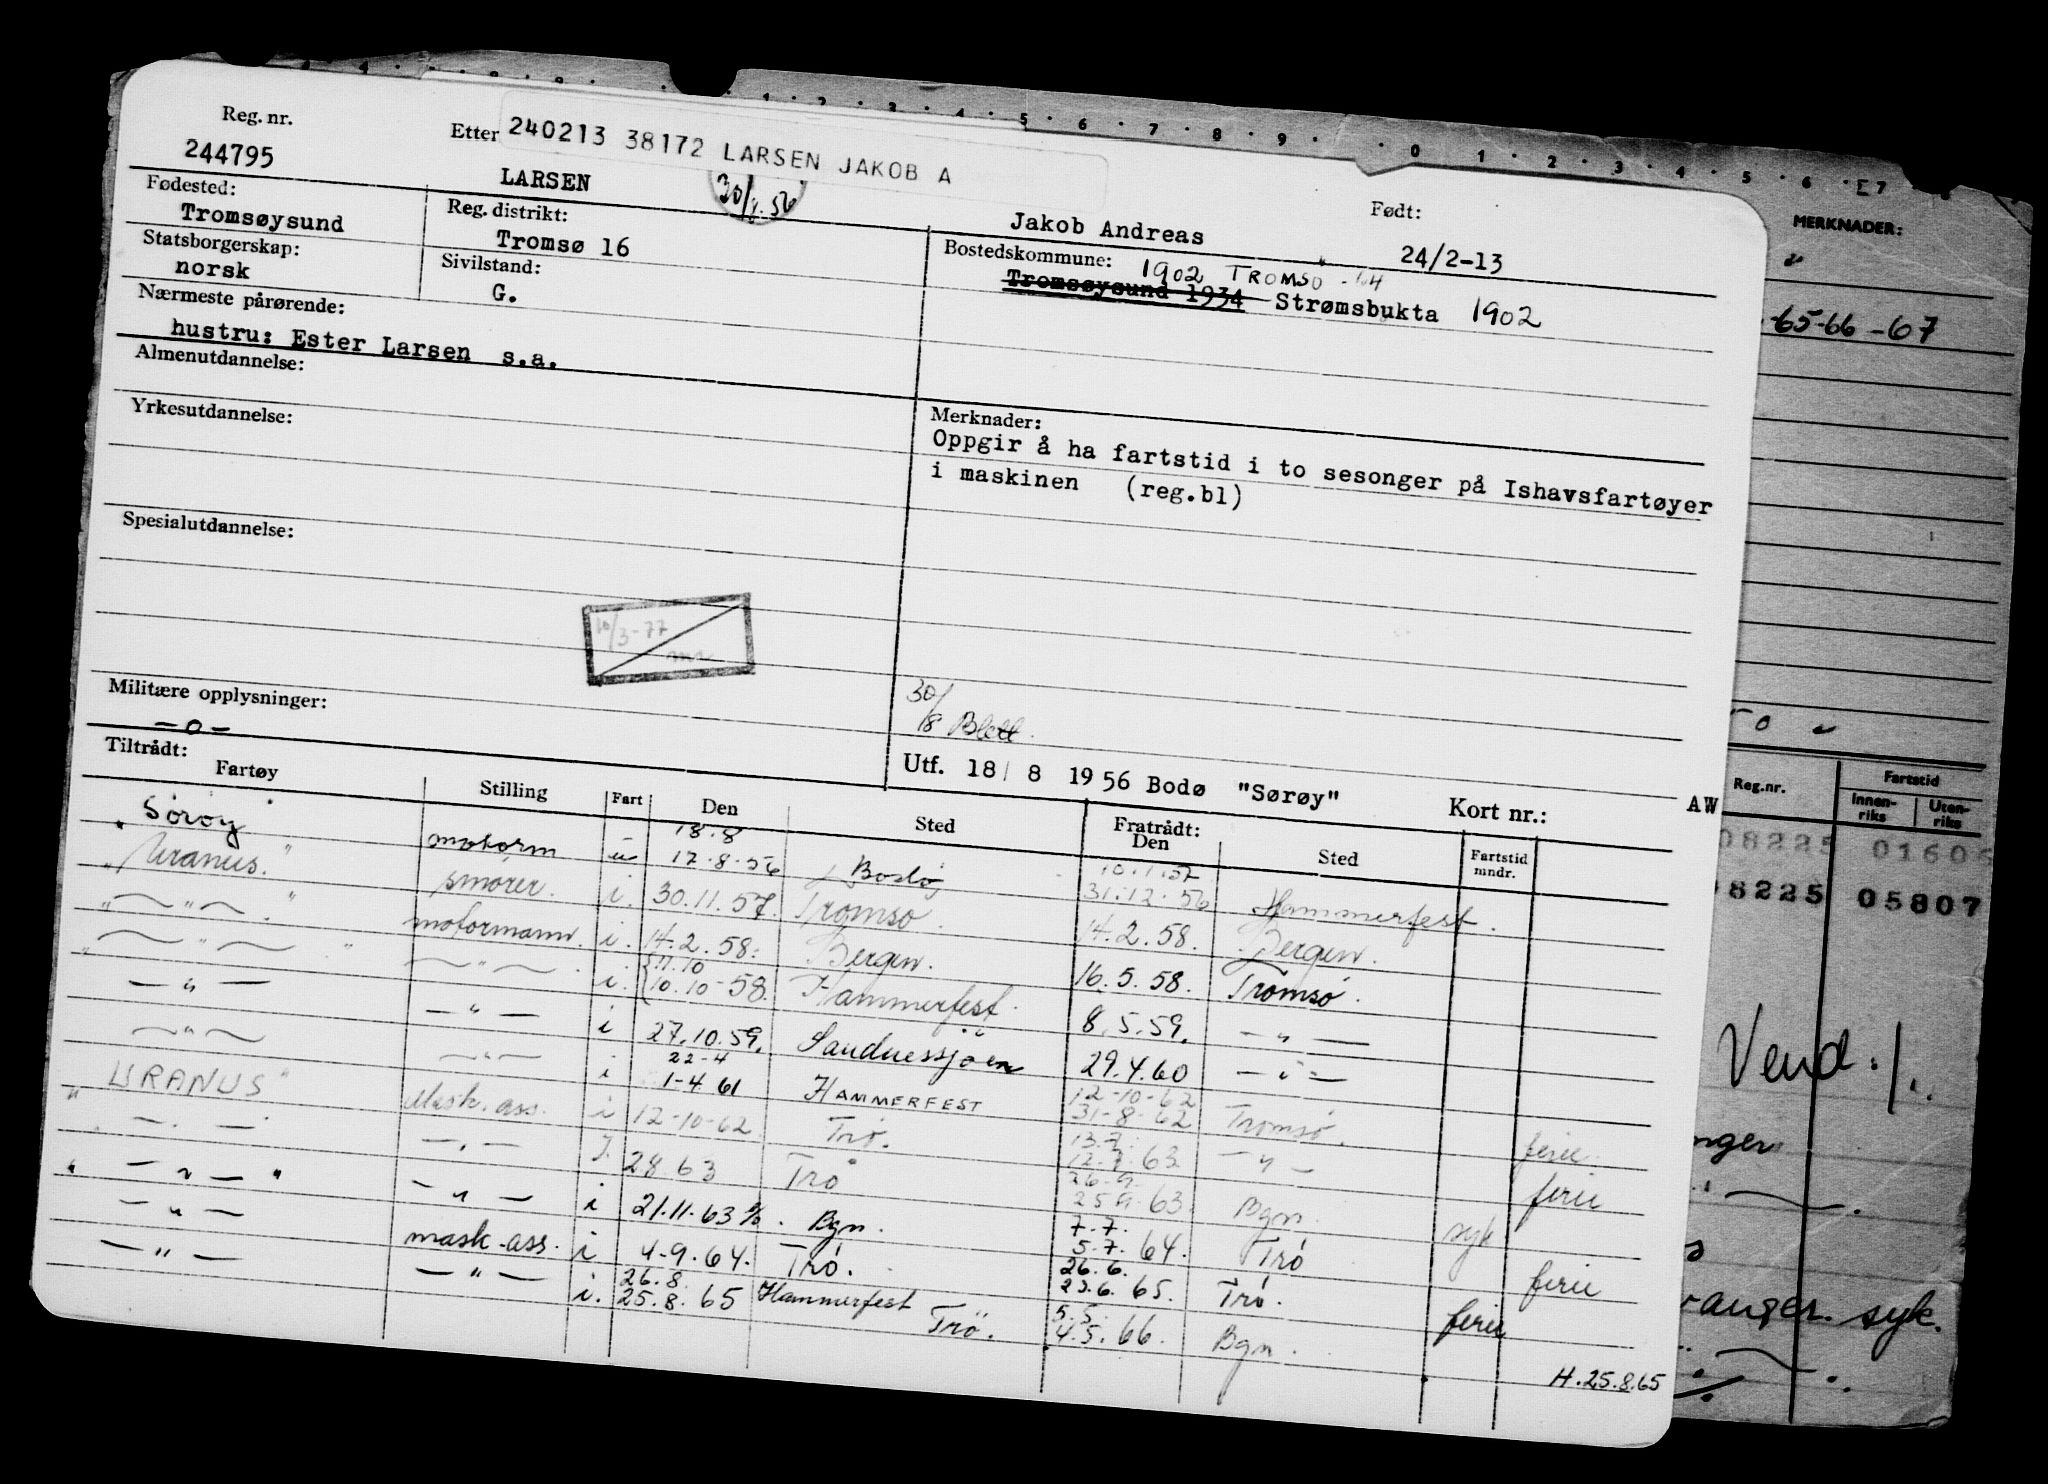 Reg. nr.
244795
Etter
240213 38172 LARSEN JAKOB A
LARSEN
Jakob Andreas
Født:
24/2-13
Fødested:
Tromsøysund
Reg. distrikt:
Tromsø 16
Bostedskommune:
1902 TROMSØ -64
Tromsøysund 1934 Strømsbukta 1902
Statsborgerskap:
norsk
Sivilstand:
G.
Nærmeste pårørende:
hustru: Ester Larsen s.a.
Almenutdannelse:
Yrkesutdannelse:
Merknader:
Oppgir å ha fartstid i to sesonger på Ishavsfartøyer
i maskinen (reg.bl)
Spesialutdannelse:
10/3-77
Militære opplysninger:
-o-
30/8 Blett.
Utf. 18/8 1956 Bodø "Sørøy" Kort nr.: AW
Tiltrådt:
Fartøy Stilling Fart Den Sted Fratrådt: Den Sted Fartstid mndr.
18.8 10.1.57
Sørøy motorm u 17.8.56 Bodø 31.12.56 Hammerfest.
"Uranus." smører. i. 30.11.57. Tromsø 14.2.58. Bergen.
" — " — . " motormann. i. 14.2.58. Bergen. 16.5.58. Tromsø.
11.10
" — " — " — " — . i. 10.10-58. Hammerfest. 8.5.59. — " —
— " — — " — i 27.10.59. Sandnessjøen 29.4.60 — " —
22-4 12-10-62
— " — — " — i 1-4.61 HAMMERFEST 31-8-62 Tromsø. ferie.
13.7.
" URANUS " Mask. ass. i 12-10-62 Trø. 12.7.63 — " — ferie
26.9.
" — . — " — " — I. 28.63 Trø 25.9.63. Bgn. syk
7.7.
" — " — " — " — i 21.11.63 Bgn. 5.7.64. Trø ferie
26.6.
— " — mask-ass. i 4-9.64. Trø. 23.6.65. Trø. ferie
26.8. 5.5.
— " — — " — i. 25.8.65 Hammerfest Trø. 4.5.66. Bgn.
H. 25.8.65
MERKNADER:
-65-66-67
Reg.nr.
Fartstid
Innen-riks
Uten-riks
08225 01606
8225 05807
Vend ./.
nger
anger. syk.